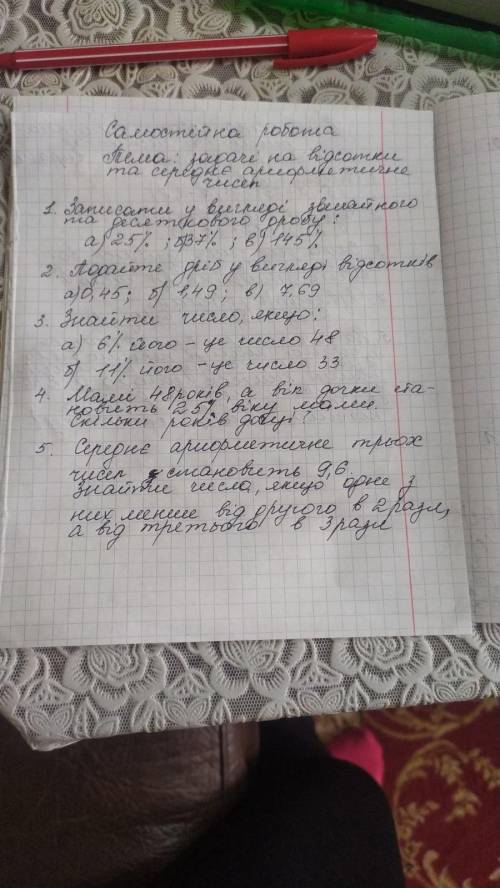 Самостійна робота
Тема: задачі на відсотки
та середнє арифметичне
чисел
1. Записати у вигляді звичайного
та десяткового дробу:
а) 25% ; б) 37% ; в) 145%
2. Подайте дріб у вигляді відсотків
а) 0,45; б) 1,49; в) 7,69
3. Знайти число, якщо:
а) 6% його - це число 48
б) 11% його - це число 33
4. Мамі 48 років, а вік дочки ста-
новить 25% віку мами.
Скільки років доці?
5. Середнє арифметичне трьох
чисел становить 9,6.
Знайти числа, якщо одне з
них менше від другого в 2 рази,
а від третього в 3 рази